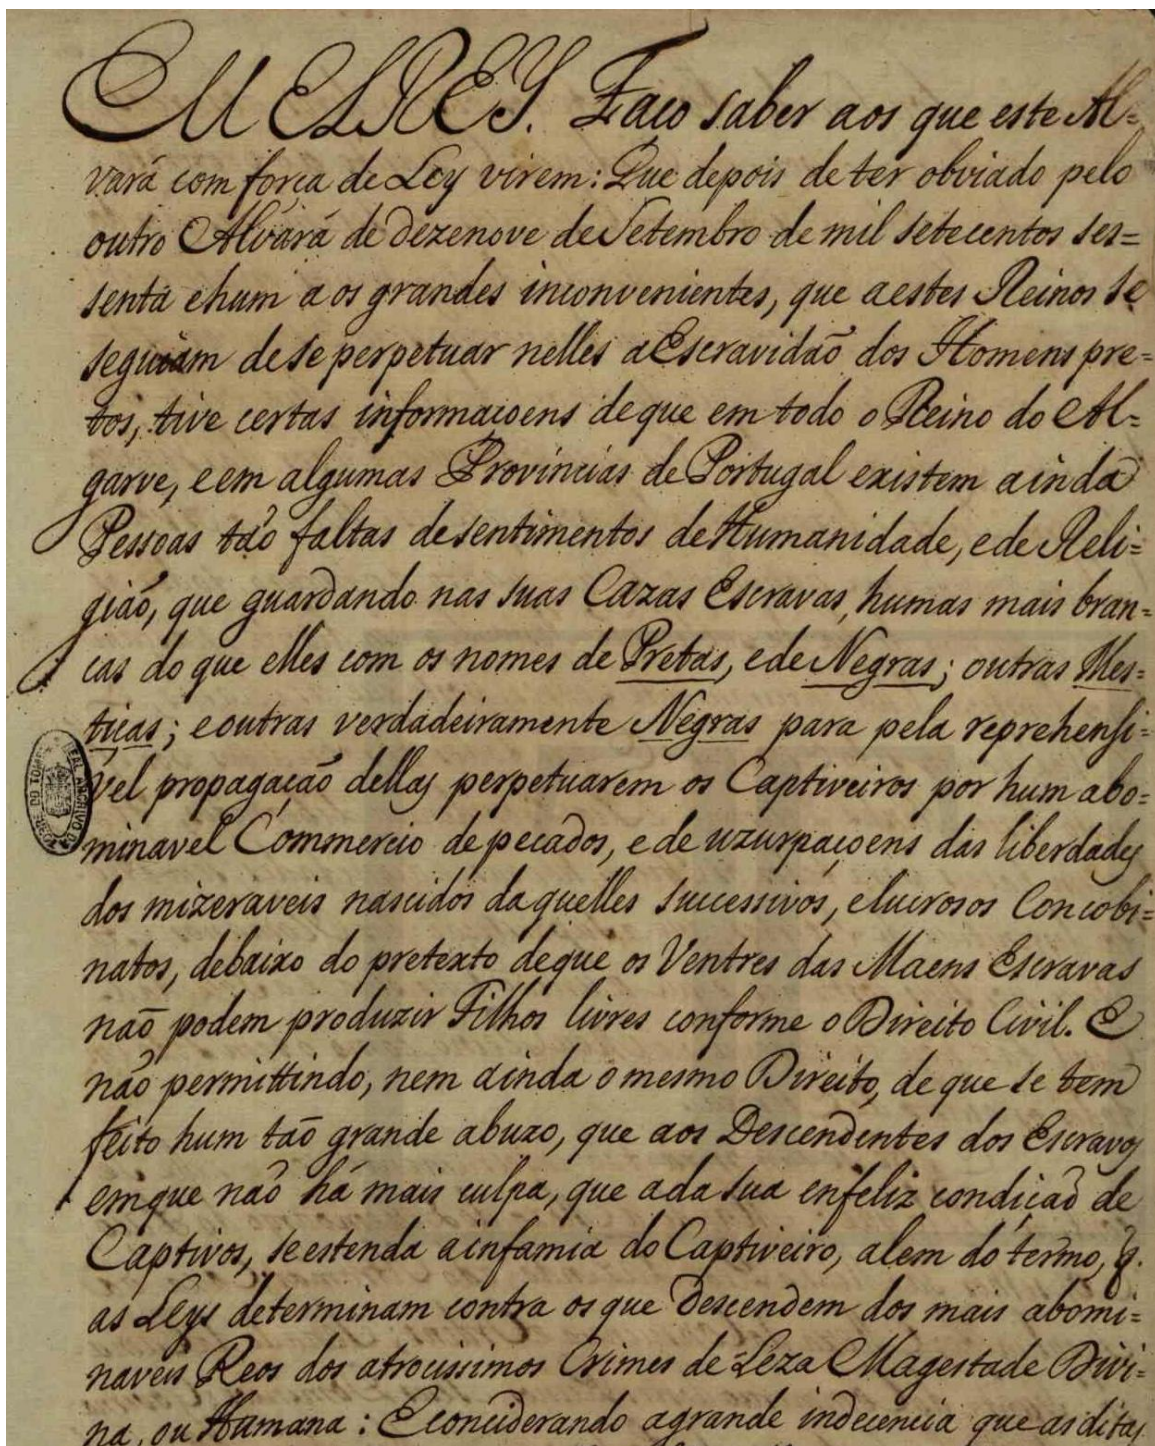 EU ELREY. Faço saber aos que este Al=
vará com força de Ley virem: Que depois de ter obviado pelo
outro Alvará de dezenove de Setembro de mil setecentos ses=
senta e hum aos grandes inconvenientes, que a estes Reinos se
seguiam de se perpetuar nelles a Escravidaõ dos Homens pre=
tos, tive certas informaçoens de que em todo o Reino do Al=
garve, e em algumas Provincias de Portugal existem ainda
Pessoas taõ faltas de sentimentos de Humanidade, e de Reli=
giaõ, que guardando nas suas Cazas Escravas, humas mais bran=
cas do que elles com os nomes de Pretas, e de Negras; outras Mes=
tiças; e outras verdadeiramente Negras para pela reprehensi=
vel propagaçaõ dellas perpetuarem os Captiveiros por hum abo=
minavel Commercio de pecados, e de uzurpaçoens das liberdades
dos mizeraveis nascidos daquelles successivos, e lucrosos Concobi=
natos, debaixo do pretexto de que os Ventres das Maens Escravas
naõ podem produzir Filhos livres conforme o Direito Civil. E
naõ permittindo, nem ainda o mesmo Direito, de que se tem
feito hum taõ grande abuzo, que aos Descendentes dos Escravos
em que naõ há mais culpa, que a da sua enfeliz condiçaõ de
Captivos, se estenda a infamia do Captiveiro, alem do termo, q.
as Leys determinam contra os que descendem dos mais abomi=
naveis Reos dos atrocissimos Crimes de Leza Magestade Divi=
na, ou Humana: E considerando a grande indecencia que as ditas